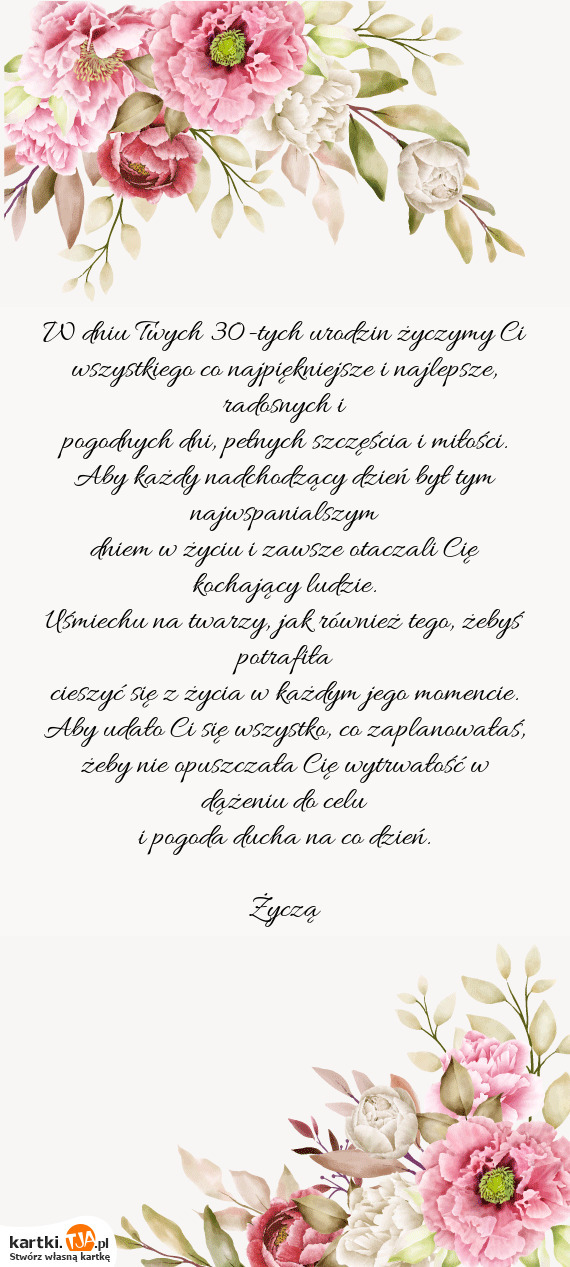 W dniu Twych 30-tych urodzin życzymy Ci
wszystkiego co najpiękniejsze i najlepsze,
radosnych i
pogodnych dni, pełnych szczęścia i miłości.
Aby każdy nadchodzący dzień był tym
najwspanialszym
dniem w życiu i zawsze otaczali Cię
kochający ludzie.
Uśmiechu na twarzy, jak również tego, żebyś
potrafiła
cieszyć się z życia w każdym jego momencie.
Aby udało Ci się wszystko, co zaplanowałaś,
żeby nie opuszczała Cię wytrwałość w
dążeniu do celu
i pogoda ducha na co dzień.
Życzą
kartki.TJA.pl
Stwórz własną kartkę